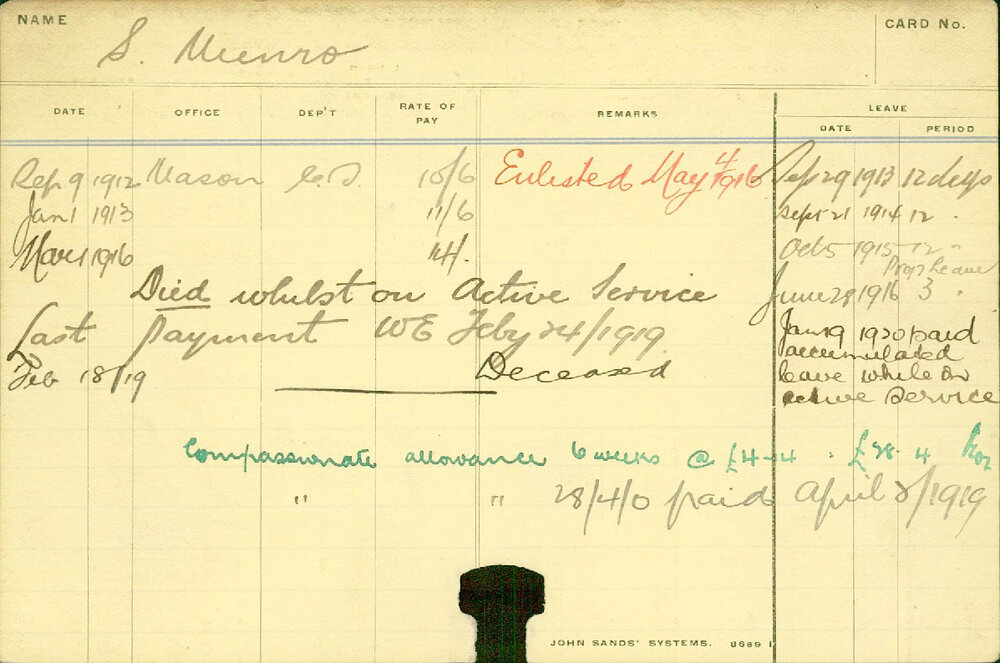 NAME
S. Munro
CARD No.
DATE OFFICE DEP'T RATE OF PAY REMARKS LEAVE
DATE PERIOD
Sep 9 1912 Mason C.S. 10/6 Enlisted May 4 1916 Sep 29 1913 12 days
Jan 1 1913 11/6 Sept 21 1914 12 "
Mar 1 1916 14/- Oct 5 1915 12 "
Died whilst on Active Service June 28 1916 3 "
Prop Leave
Last payment WE Feby 24/1919
Jan 19 1920 paid
accumulated
Feb 18/19 Deceased leave while on
active Service
Compassionate allowance 6 weeks @ £4-14 = £28-4
" " 28/4/0 paid April 8/1919
JOHN SANDS' SYSTEMS. 8689